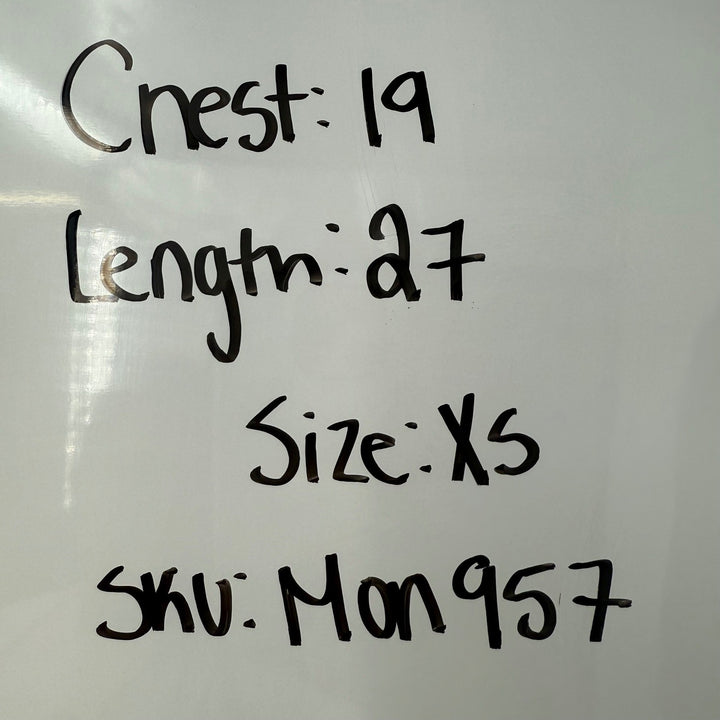 Chest: 19
Length: 27
Size: XS
SKU: Mon957